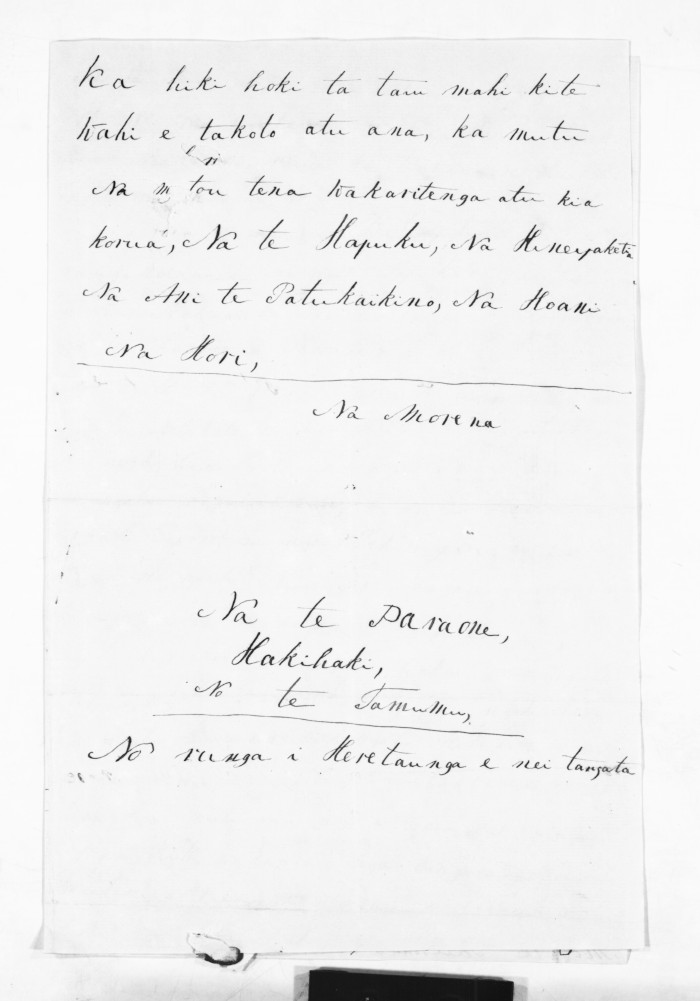 Ka hiki hoki ta tau mahi kite
wahi e takoto atu ana, ka mutu
Na m tou tena wakaritenga atu kia
korua, Na te Hapuku, Na Hineipaketia
Na Ani te Patukaikino, Na Hoani
Na Hori,
Na Morena
Na te Paraone,
Hakihaki,
No te Tamumu,
No runga i Heretaunga e nei tangata